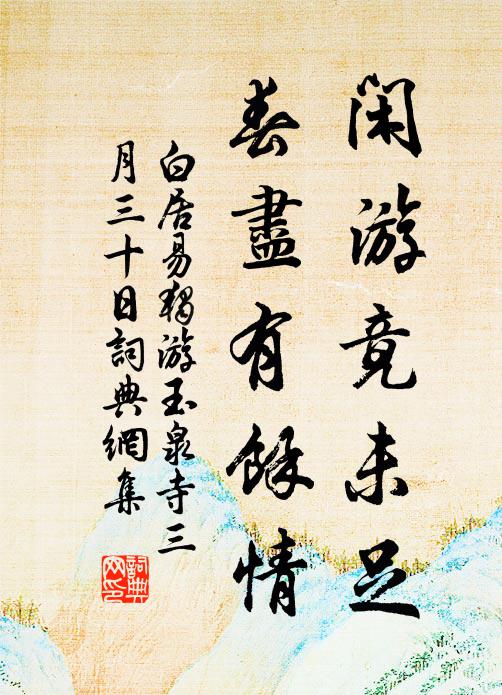 閑游竟未足
春盡有餘情
白居易獨游玉泉寺三
月三十日詞典網集
詞典
网印